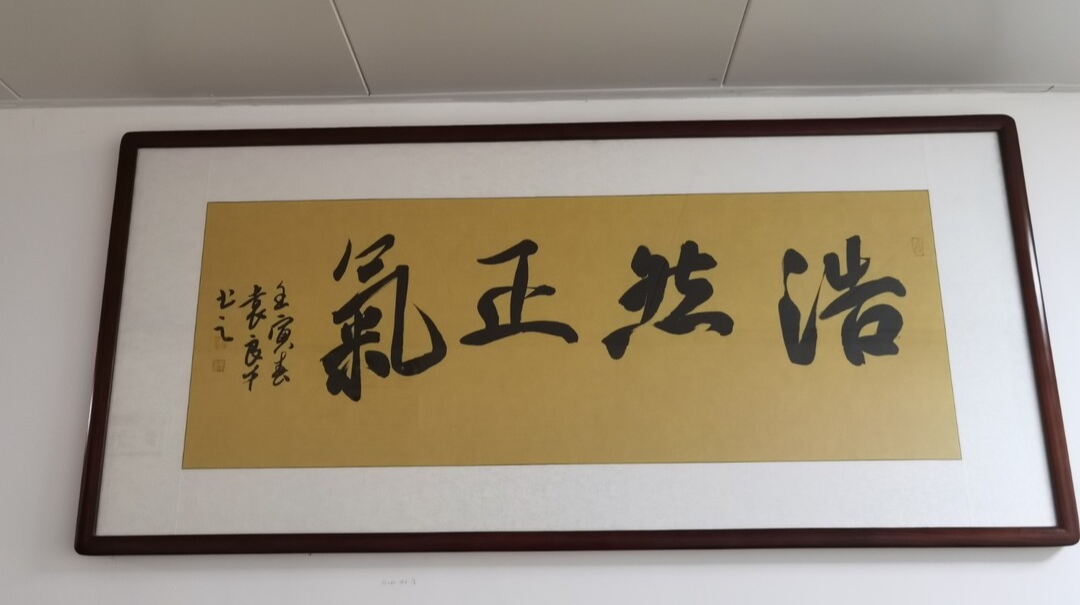 浩然正氣
壬寅春
袁良平
书之